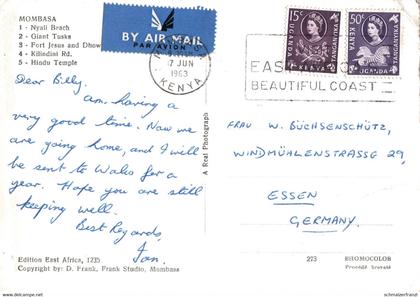 MOMBASA
1 - Nyali Beach
2 - Giant Tusks
3 - Fort Jesus and Dhow
4 - Kilindini Rd.
5 - Hindu Temple
BY AIR MAIL
PAR AVION
17 JUN
1963
KENYA
15c
UGANDA
KENYA
TANGANYIKA
50c
KENYA
UGANDA
TANGANYIKA
EAST
BEAUTIFUL COAST
Dear Billy.
Am having a
very good time. Now we
are going home, and I will
be sent to Wales for a
year. Hope you are still
keeping well.
Best Regards,
Ian.
A Real Photograph
FRAU W. BÜCHSENSCHÜTZ,
WINDMÜHLENSTRASSE 29,
ESSEN
GERMANY.
Edition East Africa, 1235
Copyright by: D. Frank, Frank Studio, Mombasa
273
RHOMOCOLOR
Procédé breveté